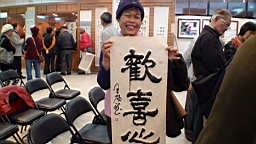 歡喜心